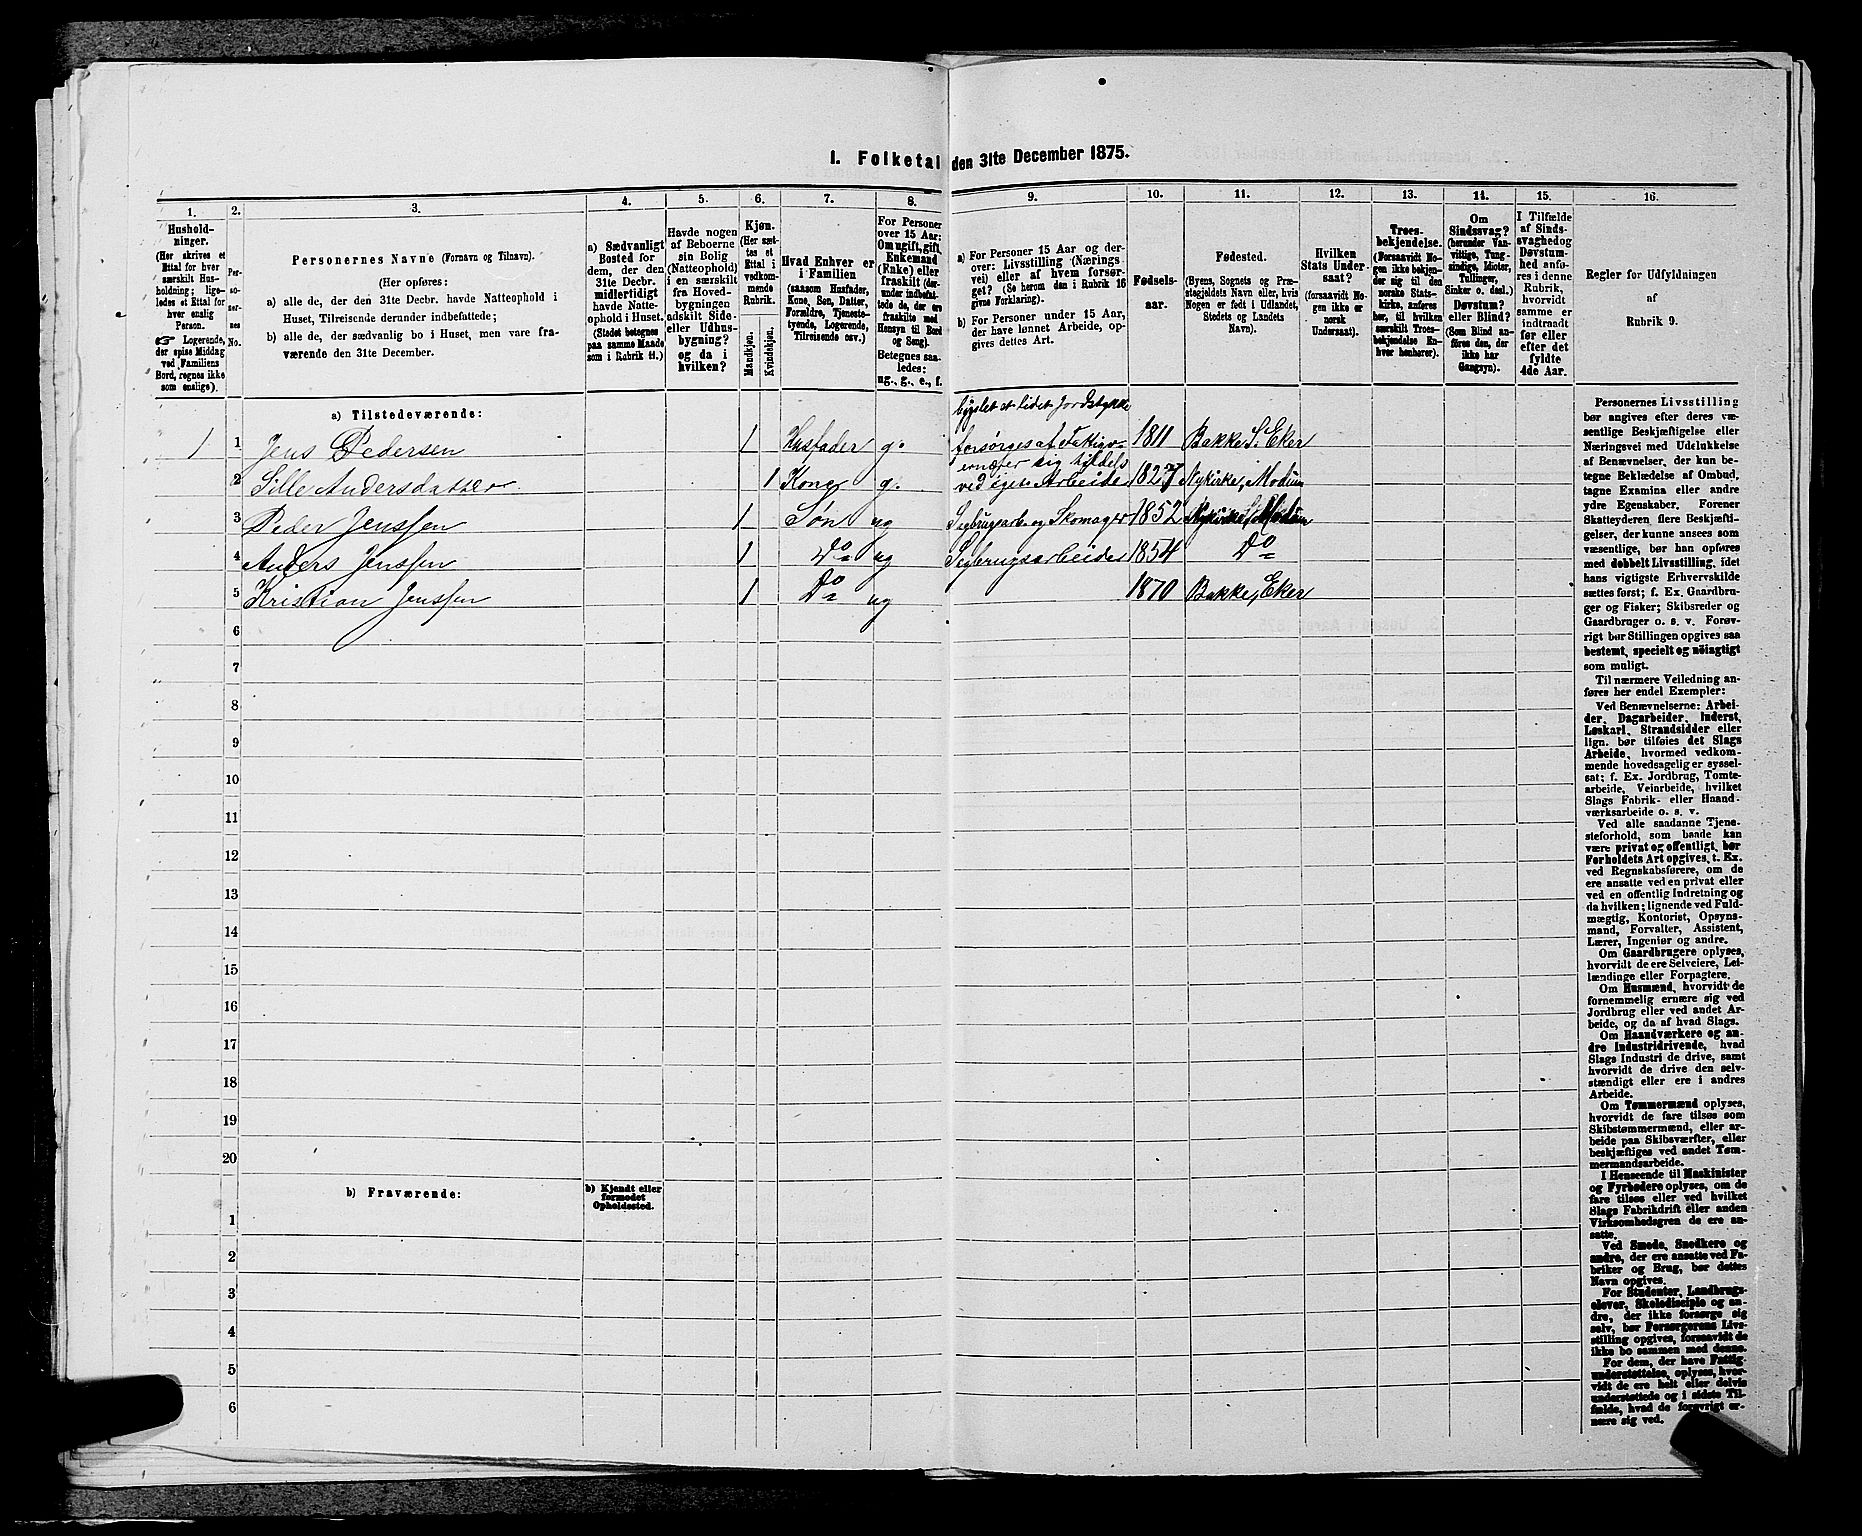 I. Folketal den 31te December 1875.
1.
2.
3.
4.
5.
6.
7.
8.
9.
10.
11.
12.
13.
14.
15.
16.
Husholdninger.
(Her skrives et
Ettal for hver
særskilt Husholdning; ligeledes et Ettal for
hver enslig
Person.
☞ Logerende,
der spise Middag
ved Familiens
Bord, regnes ikke
som enslige).
Personernes No.
Personernes Navne (Fornavn og Tilnavn).
(Her opføres:
a) alle de, der den 31te Decbr. havde Natteophold i
Huset, Tilreisende derunder indbefattede;
b) alle de, der sædvanlig bo i Huset, men vare fraværende den 31te December.
a) Sædvanligt
Bosted for
dem, der den
31te Decbr.
midlertidigt
havde Natteophold i Huset.
(Stedet betegnes
paa samme Maade
som i Rubrik 11.)
Havde nogen
af Beboerne
sin Bolig
(Natteophold)
i en særskilt
fra Hovedbygningen
adskilt Side- eller Udhusbygning?
og da i
hvilken?
Kjøn.
(Her sættes et
Ettal i
vedkommende
Rubrik.
Mandkjøn.
Kvindekjøn.
Hvad Enhver er
i Familien
(saasom Husfader,
Kone, Søn, Datter,
Forældre, Tjenestetyende, Logerende,
Tilreisende osv.)
For Personer
over 15 Aar:
Om ugift, gift,
Enkemand
(Enke) eller
fraskilt (derunder indbefattede de, der ere
fraskilte med
Hensyn til Bord
og Seng).
Betegnes saaledes:
ug., g., e., f.
a) For Personer 15 Aar og derover: Livsstilling (Næringsvei) eller af hvem forsørget? (Se herom den i Rubrik 16
givne Forklaring).
b) For Personer under 15 Aar,
der have lønnet Arbeide, opgives dettes Art.
Fødselsaar.
Fødested.
(Byens, Sognets og Præstegjeldets Navn eller, hvis
Nogen er født i Udlandet,
Stedets og Landets
Navn).
Hvilken
Stats Undersaat?
(forsaavidt Nogen ikke er
norsk
Undersaat).
Troesbekjendelse.
(Forsaavidt Nogen ikke bekjender sig til den
norske Statskirke, anføres
her, til hvilken
særskilt Troesbekjendelse Enhver henhører).
Om
Sindssvag?
(herunder Vanvittige, Tungsindige, Idioter,
Tullinger,
Sinker o. desl.)
Døvstum?
eller Blind?
(Som Blinde anføres den, der
ikke har
Gangsyn).
I Tilfælde
af Sindssvaghed og
Døvstumhed anføres i denne
Rubrik,
hvorvidt
samme er
indtraadt
før eller
efter det
fyldte
4de Aar.
Regler for Udfyldningen
af
Rubrik 9.
a) Tilstedeværende:
bygslet et lidet Jordstykke
1 1 Jens Pedersen 1 Husfader g. forsørges af Fattigv. 1811 Bakke S. Eker
ernærer sig tildels
2 Sille Andersdatter 1 Kone g. ved eget Arbeide 1827 Nykirke, Modum
3 Peder Jenssen 1 Søn ug Sagbrugsarb. og Skomager 1852 Nykirke, Modum
4 Anders Jenssen 1 Do ug Sagbrugsarbeider 1854 Do
5 Kristian Jenssen 1 Do ug 1870 Bakke, Eker
6
7
8
9
10
11
12
13
14
15
16
17
18
19
20
b) Fraværende:
b) Kjendt eller
formodet
Opholdssted.
1
2
3
4
5
6
Personernes Livsstilling
bør angives efter deres væsentlige Beskjæftigelse eller
Næringsvei med Udelukkelse
af Benævnelser, der kun betegne Beklædelse af Ombud,
tagne Examina eller andre
ydre Egenskaber. Forener
Skatteyderen flere Beskjæftigelser, der kunne ansees som
væsentlige, bør han opføres
med dobbelt Livsstilling, idet
hans vigtigste Erhvervskilde
sættes først; f. Ex. Gaardbruger og Fisker; Skibsreder og
Gaardbruger o. s. v. Forøvrigt bør Stillingen opgives saa
bestemt, specielt og nöiagtigt
som muligt.
Til nærmere Veiledning anføres her endel Exempler:
Ved Benævnelserne: Arbeider, Dagarbeider, Inderst,
Løskarl, Strandsidder eller
lign. bør tilføies det Slags
Arbeide, hvormed vedkommende hovedsagelig er sysselsat; f. Ex. Jordbrug, Tomtearbeide, Veiarbeide, hvilket
Slags Fabrik- eller Haandværksarbeide o. s. v.
Ved alle saadanne Tjenesteforhold, som baade kan
være privat og offentligt, bør
Forholdets Art opgives, t. Ex.
ved Regnskabsførere, om de
ere ansatte ved en privat eller
ved en offentlig Indretning og
da hvilken; lignende ved Fuldmægtig, Kontorist, Opsynsmand, Forvalter, Assistent,
Lærer, Ingeniør og andre.
Om Gaardbrugere oplyses,
hvorvidt de ere Selveiere, Leilændinge eller Forpagtere.
Om Husmænd, hvorvidt de
fornemmelig ernære sig ved
Jordbrug eller ved andet Arbeide, og da af hvad Slags.
Om Haandværkere og andre Industridrivende, hvad
Slags Industri de drive, samt
hvorvidt de drive den selvstændigt eller ere i andres
Arbeide.
Om Tømmermænd oplyses,
hvorvidt de fare tilsøs som
Skibstømmermænd, eller arbeide paa Skibsværfter, eller
beskjæftiges ved andet Tømmermandsarbeide.
I Henseende til Maskinister
og Fyrbødere oplyses, om de
fare tilsøs eller ved hvilket
Slags Fabrikdrift eller anden
Virksomhedsgren de ere ansatte.
Ved Smede, Snedkere og
andre, der ere ansatte ved Fabriker og Brug, bør dettes
Navn opgives.
For Studenter, Landbrugselever, Skoledisciple og andre, der ikke forsørge sig
selv, bør Forsørgerens Livsstilling opgives, forsaavidt de
ikke bo sammen med denne.
For dem, der have Fattigunderstøttelse, oplyses, hvorvidt de ere helt eller delvis
understøttede og i sidste Tilfælde, hvad de forøvrigt ernære sig ved.